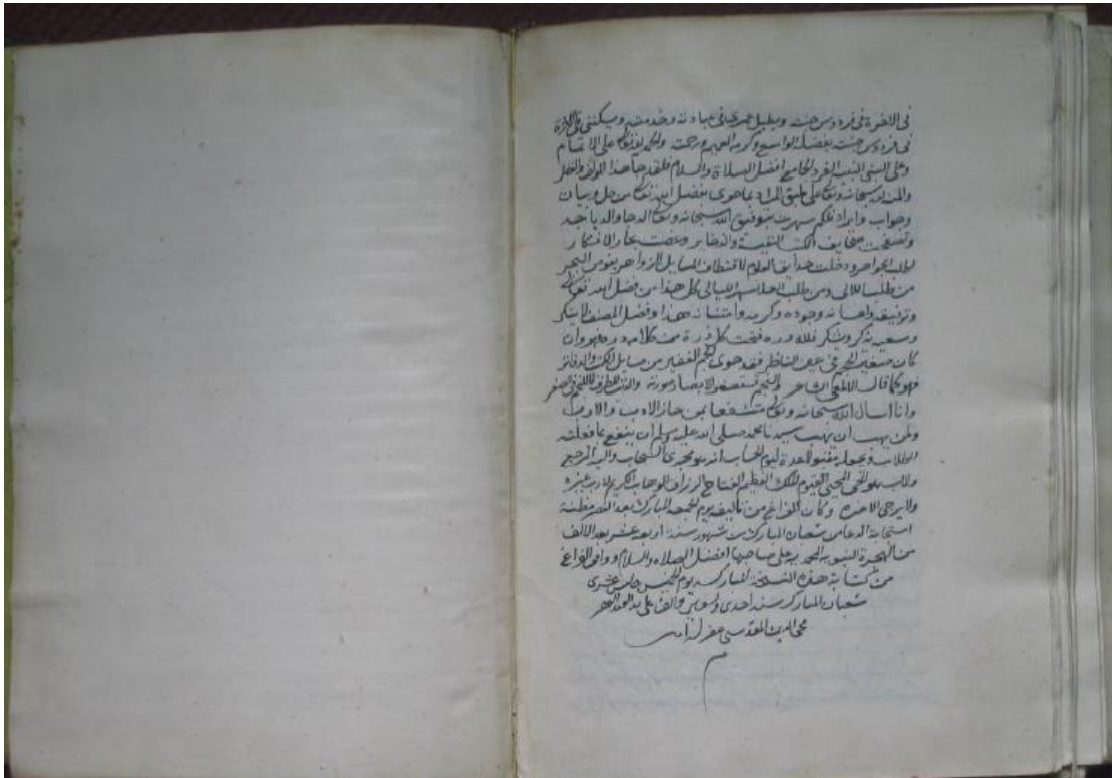 في الاخرة في فردوس جنته ويطيل عمري في عبادته وخدمته ويسكنني في الاخرة
في فردوس جنته بفضله الواسع وكرمه العميم ورحمته والحمد لله تعالى على الاتمام
وعلى النبي افضل الصلاة والسلام فلقد جا هذا المولف
والمنة لله سبحانه وتعالى على طبق المراد بما حوى بفضل الله تعالى من حل وبيان
وجواب وايراد فلكم سهرت بتوفيق الله سبحانه وتعالى الدجا والدياجيد
وتصفحت صحايف الكتب وغصت بحار الافكار
لطلب الجواهر ودخلت حدايق العلوم لاقتطاف المسايل الزواهر يغوص البحر
من طلب اللالي ومن طلب العلا سهر الليالي كل هذا من فضل الله تعالى
وتوفيقه واحسانه وجوده وكرمه وامتنانه هذا وفضل المصنف لا ينكر
وسعيه يذكر ويشكر فلله دره فتحت كل ذرة من كلامه درة فهو وان
كان صغير الحجم في عين الناظر فقد حوى الجم الغفير من مسايل الكتب والدفاتر
فهو كما قال الشاعر والنجم تستصغر الابصار صورته والذنب للطرف لا للنجم في الصغر
وانا اسال الله سبحانه وتعالى متشفعا بمن حاز الادب
سيدنا محمد صلى الله عليه وسلم ان ينفع بما فعلته
الطلاب ويجعله عدة ليوم الحساب انه هو مجري السحاب واليه المرجع
هو الحي المحيي القيوم الملك العظيم الفتاح الرزاق الوهاب الكريم لا رب غيره
ولا يرجى الا خيره وكان الفراغ من تاليفه يوم الجمعة المبارك بعد العصر مظنة
استجابة الدعا من شعبان المبارك من شهور سنة اربعة عشر بعد الالف
من الهجرة النبوية المحمدية على صاحبها افضل الصلاه والسلام ووافى الفراغ
من كتابة هذه النسخة المباركه يوم الخميس خامس عشري
شعبان المبارك سنه احدى وسبعين والف على يد العبد الفقير
محي الدين القدسي غفر له امين
م